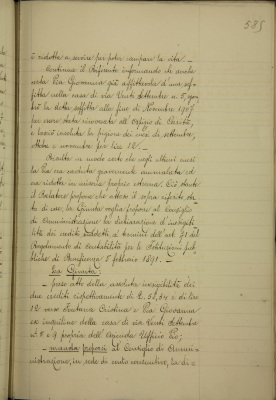 585
è ridotta a servire per poter campare la vita.
Continua il Referente informando che anche
certa Pia Giovanna già affittavola di una sof-
fitta nella casa di via Venti Settembre n. 7, sgom-
brò la detta soffitta alla fine di Novembre 1907
per essere stata ricoverata all'Ospizio di Carità,
e lasciò insoluta la pigione dei mesi di settembre,
ottobre e novembre per lire 12.
Risulta in modo certo che negli ultimi mesi
la Pia era caduta gravemente ammalata ed
era ridotta in miseria proprio estrema. Ciò stante
il Relatore propone che atteso il sopra riferito sta-
to di cose, la Giunta voglia proporre al Consiglio
di Amministrazione la dichiarazione di inesigibi-
lità dei crediti suddetti ai termini dell'art. 31 del
Regolamento di Contabilità per le Istituzioni pub-
bliche di Beneficenza 5 febbraio 1891.
La Giunta:
preso atto della assoluta inesigibilità dei
due crediti rispettivamente di L. e di lire
12 verso Fontana Cristina e Pia Giovanna
ex inquiline della casa di via Venti Settembre
n. 7 e 9 propria dell'Azienda Ufficio Pio;
manda proporsi al Consiglio di Ammini-
strazione, in sede di conto consuntivo, la di-